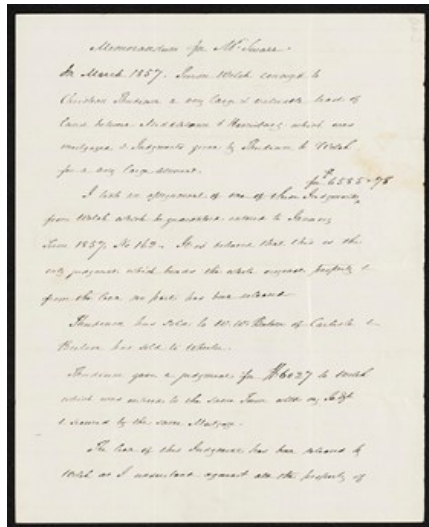 Memorandum for Mr. Swarr.
In March 1857. Simon Welch conveyed to
Christian a very large & valuable tract of
land between Middletown & Harrisburg which was
mortgaged & Judgments given by to Welch
for a very large amount.
for $6585.78
I took an assignment of one of these Judgments
from Welch which he guaranteed entered to January
Term 1857, No 162. It is believed that this is the
only judgment which binds the whole original property &
from the lien no part has been released
has sold to W. W. of Carlisle &
has sold to Wheeler.
gave a judgment for $6027 to Welch
which was entered to the same Term with my
& secured by the same Mortgage.
The lien of this Judgment has been released by
Welch as I understand against all the property of